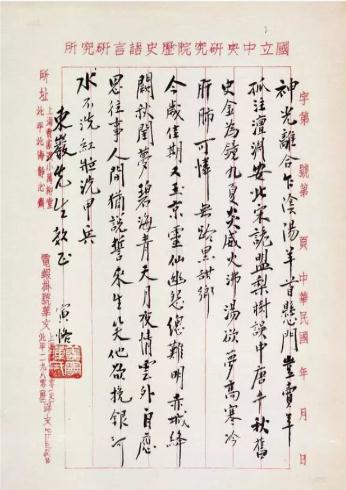 國立中央研究院歷史語言研究所
字第 號第 頁 中華民國 年 月 日
神光離合乍陰陽羊首懸門豈賣羊
孤注澶淵安北宋 盟梨樹誤中唐千秋舊
史金為鏡九夏炎威火沸湯欲夢高寒冷
肝肺可憐無路黑甜鄉
今歲佳期又玉京靈仙幽怨總難明赤城絳
闕秋閨夢碧海青天月夜情雲外自應
思往事人間猶說誓來生笑他欲挽銀河
水不洗紅粧洗甲兵
東巖先生教正 寅恪
所址 上海曹家渡小萬柳堂
北平北海靜心齋
電報掛號華文